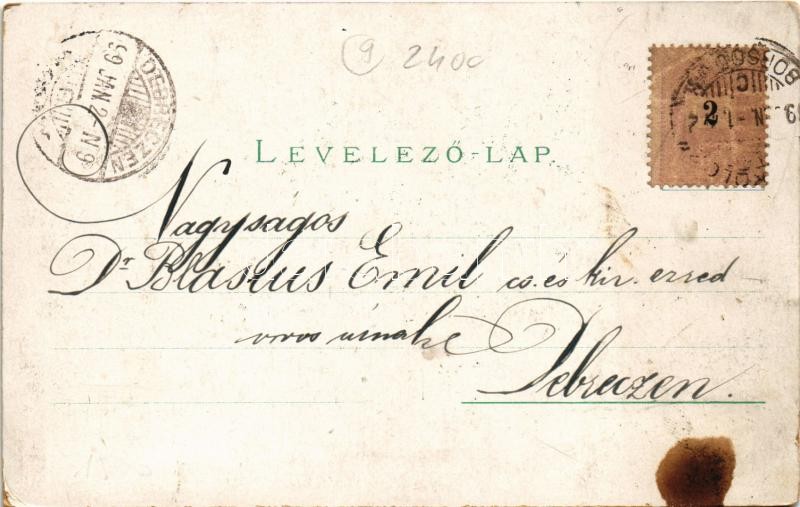 9 2400
DEBRECZEN
99 JAN 2 N9
2
LEVELEZŐ-LAP.
Nagyságos
Dr Blasius Emil cs. és kir. ezred
orvos úrnak
Debreczen.